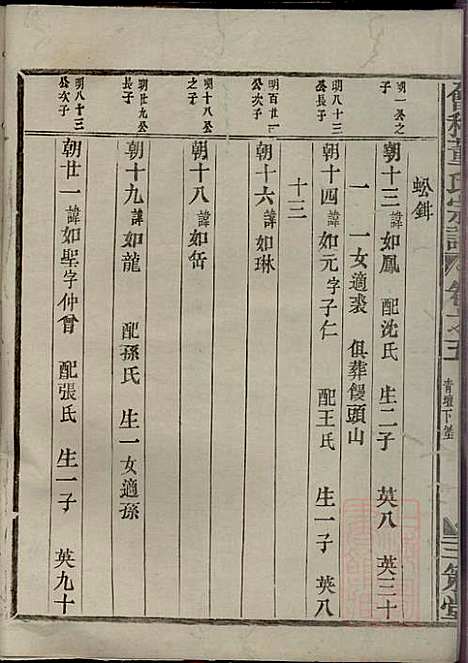 會稽董氏宗譜 卷之五 青壇下
蚣鉺
明一公之子
朝十三諱如鳳 配沈氏 生二子 英八 英三十
一 一女適裘 俱葬饅頭山
明八十三公長子
朝十四諱如元字子仁 配王氏 生一子 英八
十三
明百廿一公次子
朝十六諱如琳
明十八公之子
朝十八諱如岳
明廿九公長子
朝十九諱如龍 配孫氏 生一女適孫
明八十三公次子
朝廿一諱如聖字仲曾 配張氏 生一子 英九十